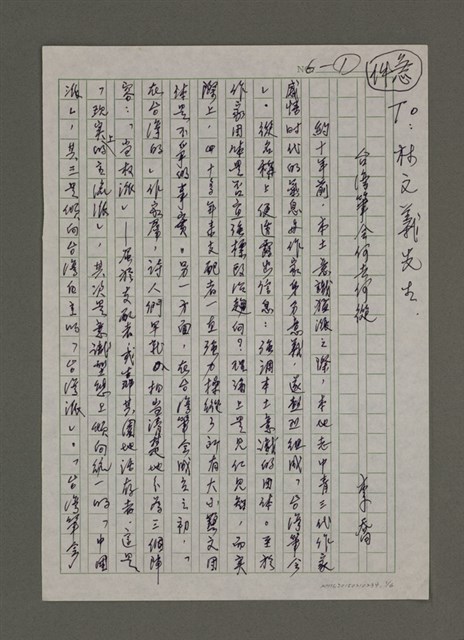 急件
N 6-①
To: 林文義先生.
台灣筆會何去何從
李喬
約十年前，本土意識猖漲之際，本地老中青三代作家
感悟時代的氣息與作家身分意義，遂起組成「台灣筆會
」。從名稱上便透露出信息：強調本土意識的團體。至於
作家團體是否宜強標政治趨向？理論上是見仁見智，而實
際上，四十多年來支配者一直強力操縱了所有大小藝文團
體是不爭的事實。另一方面，在台灣筆會成立之初，
在台灣的」作家群，詩人們早就相當清楚地分為三個陣
容：「當權派」——屬於支配者或靠其園地活存者。這是
「現實上的主流派」，其次是意識型態上傾向統一的「中國
派」，其三是傾向台灣自主的「台灣派」。「台灣筆會